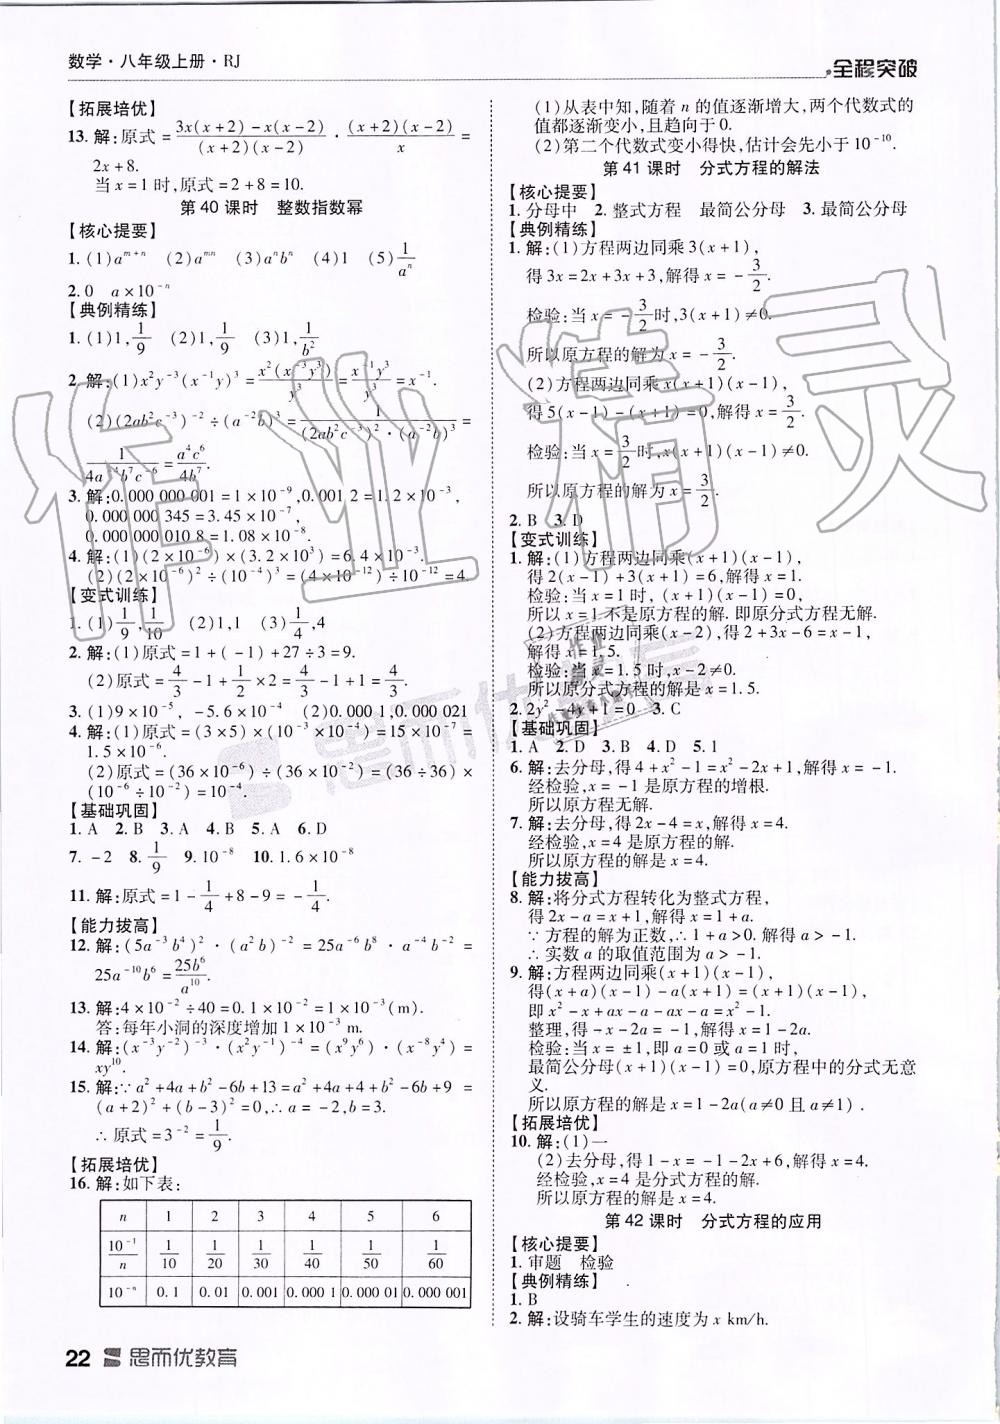 数学·八年级上册·RJ
全程突破
【拓展培优】
13. 解:原式=\frac{3x(x+2)-x(x-2)}{(x+2)(x-2)}·\frac{(x+2)(x-2)}{x}=
2x+8.
当x=1时,原式=2+8=10.
第40课时 整数指数幂
【核心提要】
1. (1)a^{m+n} (2)a^{mn} (3)a^nb^n (4)1 (5)\frac{1}{a^n}
2. 0 a×10^{-n}
【典例精练】
1. (1)1,\frac{1}{9} (2)1 (3)1,\frac{1}{b^2}
2. 解:(1)x^2y^{-3}(x^{-1}y)^3=\frac{x^2(x^{-3}y^3)}{y^3}=\frac{x^{-1}y^3}{y^3}=x^{-1}.
(2)(2ab^2c^{-3})^{-2}÷(a^{-2}b)^3=\frac{1}{(2ab^2c^{-3})^2·(a^{-2}b)^3}=
\frac{1}{4a^{-4}b^7c^{-6}}=\frac{a^4c^6}{4b^7}.
3. 解:0.000 000 001=1×10^{-9},0.001 2=1.2×10^{-3},
0.000 000 345=3.45×10^{-7},
0.000 000 010 8=1.08×10^{-8}.
4. 解:(1)(2×10^{-6})×(3.2×10^3)=6.4×10^{-3}.
(2)(2×10^{-6})^2÷(10^{-4})^3=(4×10^{-12})÷10^{-12}=4.
【变式训练】
1. (1)\frac{1}{9},\frac{1}{10} (2)1,1 (3)\frac{1}{4},4
2. 解:(1)原式=1+(-1)+27÷3=9.
(2)原式=\frac{4}{3}-1+\frac{1}{2}×2=\frac{4}{3}-1+1=\frac{4}{3}.
3. (1)9×10^{-5}, -5.6×10^{-4} (2)0.000 1,0.000 021
4. 解:(1)原式=(3×5)×(10^{-3}×10^{-4})=15×10^{-7}=
1.5×10^{-6}.
(2)原式=(36×10^{-6})÷(36×10^{-2})=(36÷36)×
(10^{-6}÷10^{-2})=10^{-4}.
【基础巩固】
1. A 2. B 3. A 4. B 5. A 6. D
7. -2 8. \frac{1}{9} 9. 10^{-8} 10. 1.6×10^{-8}
11. 解:原式=1-\frac{1}{4}+8-9=-\frac{1}{4}.
【能力拔高】
12. 解:(5a^{-3}b^4)^2·(a^2b)^{-2}=25a^{-6}b^8·a^{-4}b^{-2}=
25a^{-10}b^6=\frac{25b^6}{a^{10}}.
13. 解:4×10^{-2}÷40=0.1×10^{-2}=1×10^{-3}(m).
答:每年小洞的深度增加1×10^{-3} m.
14. 解:(x^{-3}y^{-2})^{-3}·(x^2y^{-1})^{-4}=(x^9y^6)·(x^{-8}y^4)=
xy^{10}.
15. 解:∵a^2+4a+b^2-6b+13=a^2+4a+4+b^2-6b+9=
(a+2)^2+(b-3)^2=0,∴a=-2,b=3.
∴原式=3^{-2}=\frac{1}{9}.
【拓展培优】
16. 解:如下表:
n 1 2 3 4 5 6
\frac{10^{-1}}{n} \frac{1}{10} \frac{1}{20} \frac{1}{30} \frac{1}{40} \frac{1}{50} \frac{1}{60}
10^{-n} 0.1 0.01 0.001 0.000 1 0.000 01 0.000 001
(1)从表中知,随着n的值逐渐增大,两个代数式的
值都逐渐变小,且趋向于0.
(2)第二个代数式变小得快,估计会先小于10^{-10}.
第41课时 分式方程的解法
【核心提要】
1. 分母中 2. 整式方程 最简公分母 3. 最简公分母
【典例精练】
1. 解:(1)方程两边同乘3(x+1),
得3x=2x+3x+3,解得x=-\frac{3}{2}.
检验:当x=-\frac{3}{2}时,3(x+1)≠0.
所以原方程的解为x=-\frac{3}{2}.
(2)方程两边同乘x(x+1)(x-1),
得5(x-1)-(x+1)=0,解得x=\frac{3}{2}.
检验:当x=\frac{3}{2}时,x(x+1)(x-1)≠0.
所以原方程的解为x=\frac{3}{2}.
2. B 3. D
【变式训练】
1. 解:(1)方程两边同乘(x+1)(x-1),
得2(x-1)+3(x+1)=6,解得x=1.
检验:当x=1时,(x+1)(x-1)=0,
所以x=1不是原方程的解. 即原分式方程无解.
(2)方程两边同乘(x-2),得2+3x-6=x-2,
解得x=1.5.
检验:当x=1.5时,x-2≠0.
所以原分式方程的解是x=1.5.
2. 2y^2-4y+1=0 3. C
【基础巩固】
1. A 2. D 3. B 4. D 5. 1
6. 解:去分母,得4+x^2-1=x^2-2x+1,解得x=-1.
经检验,x=-1是原方程的增根.
所以原方程无解.
7. 解:去分母,得2x-4=x,解得x=4.
经检验,x=4是原方程的解.
所以原方程的解是x=4.
【能力拔高】
8. 解:将分式方程转化为整式方程,
得2x-a=x+1,解得x=1+a.
∵方程的解为正数,∴1+a>0. 解得a>-1.
∴实数a的取值范围为a>-1.
9. 解:方程两边同乘(x+1)(x-1),
得(x+a)(x-1)-a(x+1)=(x+1)(x-1),
即x^2-x+ax-a-ax-a=x^2-1.
整理,得-x-2a=-1,解得x=1-2a.
检验:当x=±1,即a=0或a=1时,
最简公分母(x+1)(x-1)=0,原方程中的分式无意
义.
所以原方程的解是x=1-2a(a≠0且a≠1).
【拓展培优】
10. 解:(1)一
(2)去分母,得1-x=-1-2x+6,解得x=4.
经检验,x=4是分式方程的解.
所以原方程的解是x=4.
第42课时 分式方程的应用
【核心提要】
1. 审题 检验
【典例精练】
1. B
2. 解:设骑车学生的速度为x km/h.
22 思而优教育
作业精灵
思而优教育